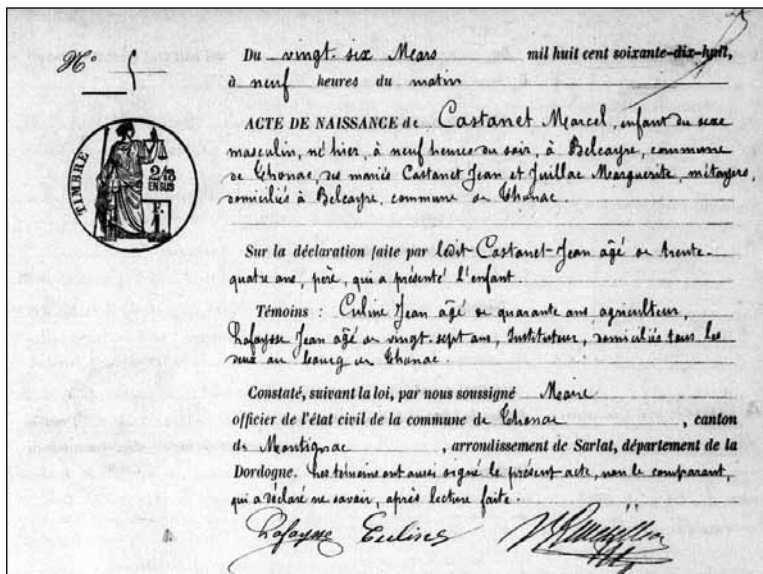 N° 5
TIMBRE
2/10
EN SUS
Du vingt six Mars mil huit cent soixante-dix-huit,
à neuf heures du matin
ACTE DE NAISSANCE de Castanet Marcel, enfant du sexe
masculin, né hier, à neuf heures du soir, à Belcayre, commune
de Thonac, des mariés Castanet Jean et Juillac Marguerite, métayers,
domiciliés à Belcayre, commune de Thonac
Sur la déclaration faite par ledit Castanet Jean âgé de trente-
quatre ans, père, qui a présenté l'enfant.
Témoins : Jean âgé de quarante ans agriculteur,
Lafaysse Jean âgé de vingt-sept ans, Instituteur, domiciliés tous les
deux au bourg de Thonac
Constaté, suivant la loi, par nous soussigné Maire
officier de l'état civil de la commune de Thonac, canton
de Montignac, arrondissement de Sarlat, département de la
Dordogne. Les témoins ont aussi signé le présent acte, non le comparant,
qui a déclaré ne savoir, après lecture faite.
Lafaysse